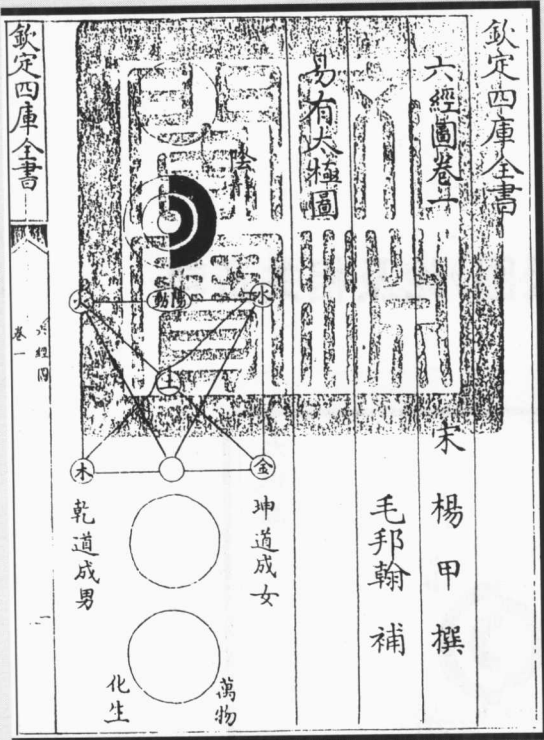 欽定四庫全書
六經圖卷一
宋 楊甲 撰
毛邦翰 補
易有太極圖
陰靜
陽動
水
火
土
金
木
坤道成女
乾道成男
萬物
化生
欽定四庫全書
六經圖
卷一
一